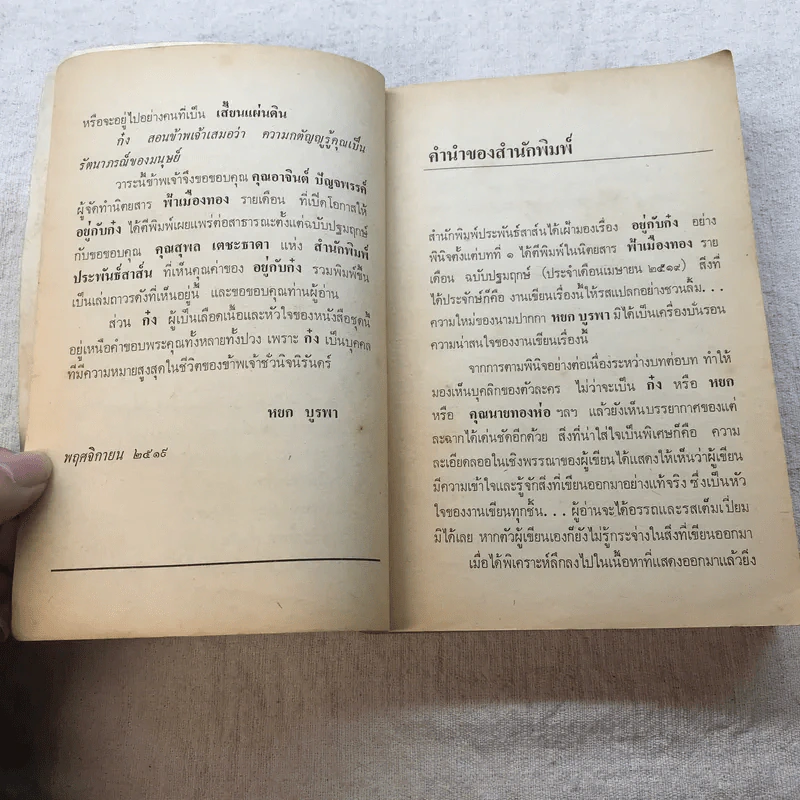 หรือจะอยู่ไปอย่างคนที่เป็น เสี้ยนแผ่นดิน
ก๋ง สอนข้าพเจ้าเสมอว่า ความกตัญญูรู้คุณเป็น
รัตนาภรณ์ของมนุษย์
วาระนี้ข้าพเจ้าจึงขอขอบคุณ คุณอาจินต์ ปัญจพรรค์
ผู้จัดทำนิตยสาร ฟ้าเมืองทอง รายเดือน ที่เปิดโอกาสให้
อยู่กับก๋ง ได้ตีพิมพ์เผยแพร่ต่อสาธารณะตั้งแต่ฉบับปฐมฤกษ์
กับขอขอบคุณ คุณสุพล เตชะธาดา แห่ง สำนักพิมพ์
ประพันธ์สาส์น ที่เห็นคุณค่าของ อยู่กับก๋ง รวมพิมพ์ขึ้น
เป็นเล่มถาวรดังที่เห็นอยู่นี้ และขอขอบคุณท่านผู้อ่าน
ส่วน ก๋ง ผู้เป็นเลือดเนื้อและหัวใจของหนังสือชุดนี้
อยู่เหนือคำขอบพระคุณทั้งหลายทั้งปวง เพราะ ก๋ง เป็นบุคคล
ที่มีความหมายสูงสุดในชีวิตของข้าพเจ้าชั่วนิจนิรันดร์
หยก บูรพา
พฤศจิกายน ๒๕๑๙
คำนำของสำนักพิมพ์
สำนักพิมพ์ประพันธ์สาส์นได้เฝ้ามองเรื่อง อยู่กับก๋ง อย่าง
พินิจตั้งแต่บทที่ ๑ ได้ตีพิมพ์ในนิตยสาร ฟ้าเมืองทอง ราย
เดือน ฉบับปฐมฤกษ์ (ประจำเดือนเมษายน ๒๕๑๙) สิ่งที่
ได้ประจักษ์ก็คือ งานเขียนเรื่องนี้ให้รสแปลกอย่างชวนลิ้ม...
ความใหม่ของนามปากกา หยก บูรพา มิได้เป็นเครื่องบั่นรอน
ความน่าสนใจของงานเขียนเรื่องนี้
จากการตามพินิจอย่างต่อเนื่องระหว่างบทต่อบท ทำให้
มองเห็นบุคลิกของตัวละคร ไม่ว่าจะเป็น ก๋ง หรือ หยก
หรือ คุณนายทองห่อ ฯลฯ แล้วยังเห็นบรรยากาศของแต่
ละฉากได้เด่นชัดอีกด้วย สิ่งที่น่าใส่ใจเป็นพิเศษก็คือ ความ
ละเอียดลออในเชิงพรรณาของผู้เขียนได้แสดงให้เห็นว่าผู้เขียน
มีความเข้าใจและรู้จักสิ่งที่เขียนออกมาอย่างแท้จริง ซึ่งเป็นหัว
ใจของงานเขียนทุกชิ้น... ผู้อ่านจะได้อรรถและรสเต็มเปี่ยม
มิได้เลย หากตัวผู้เขียนเองก็ยังไม่รู้กระจ่างในสิ่งที่เขียนออกมา
เมื่อได้พิเคราะห์ลึกลงไปในเนื้อหาที่แสดงออกมาแล้วยิ่ง